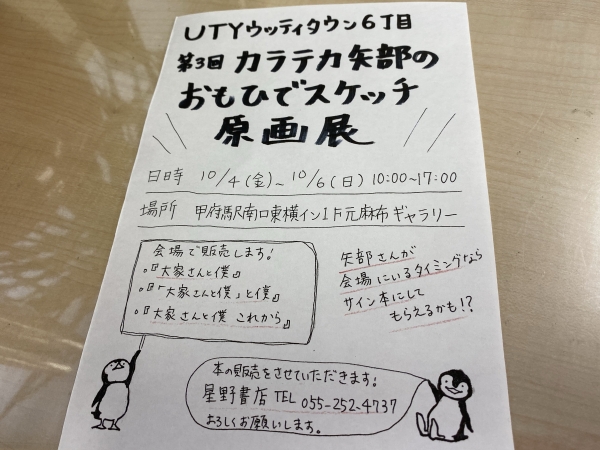 UTYウッティタウン6丁目
第3回 カラテカ矢部の
おもひでスケッチ
原画展
日時 10/4(金)~10/6(日) 10:00~17:00
場所 甲府駅南口東横イン1F元麻布ギャラリー
会場で販売します!
。『大家さんと僕』
。『「大家さんと僕」と僕』
。『大家さんと僕 これから』
矢部さんが
会場にいるタイミングなら
サイン本にして
もらえるかも!?
本の販売をさせていただきます!
星野書店 TEL 055-252-4737
よろしくお願いします。